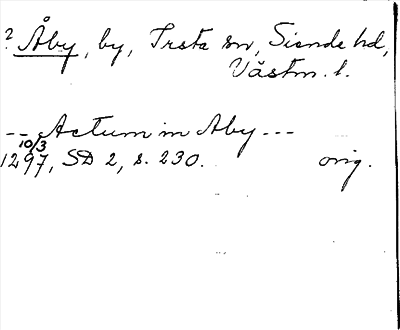 ? Åby, by, Irsta sn, Siende hd,
Västm. l.
-- Actum in Aby ---
10/3
1297, SD 2, s. 230. orig.